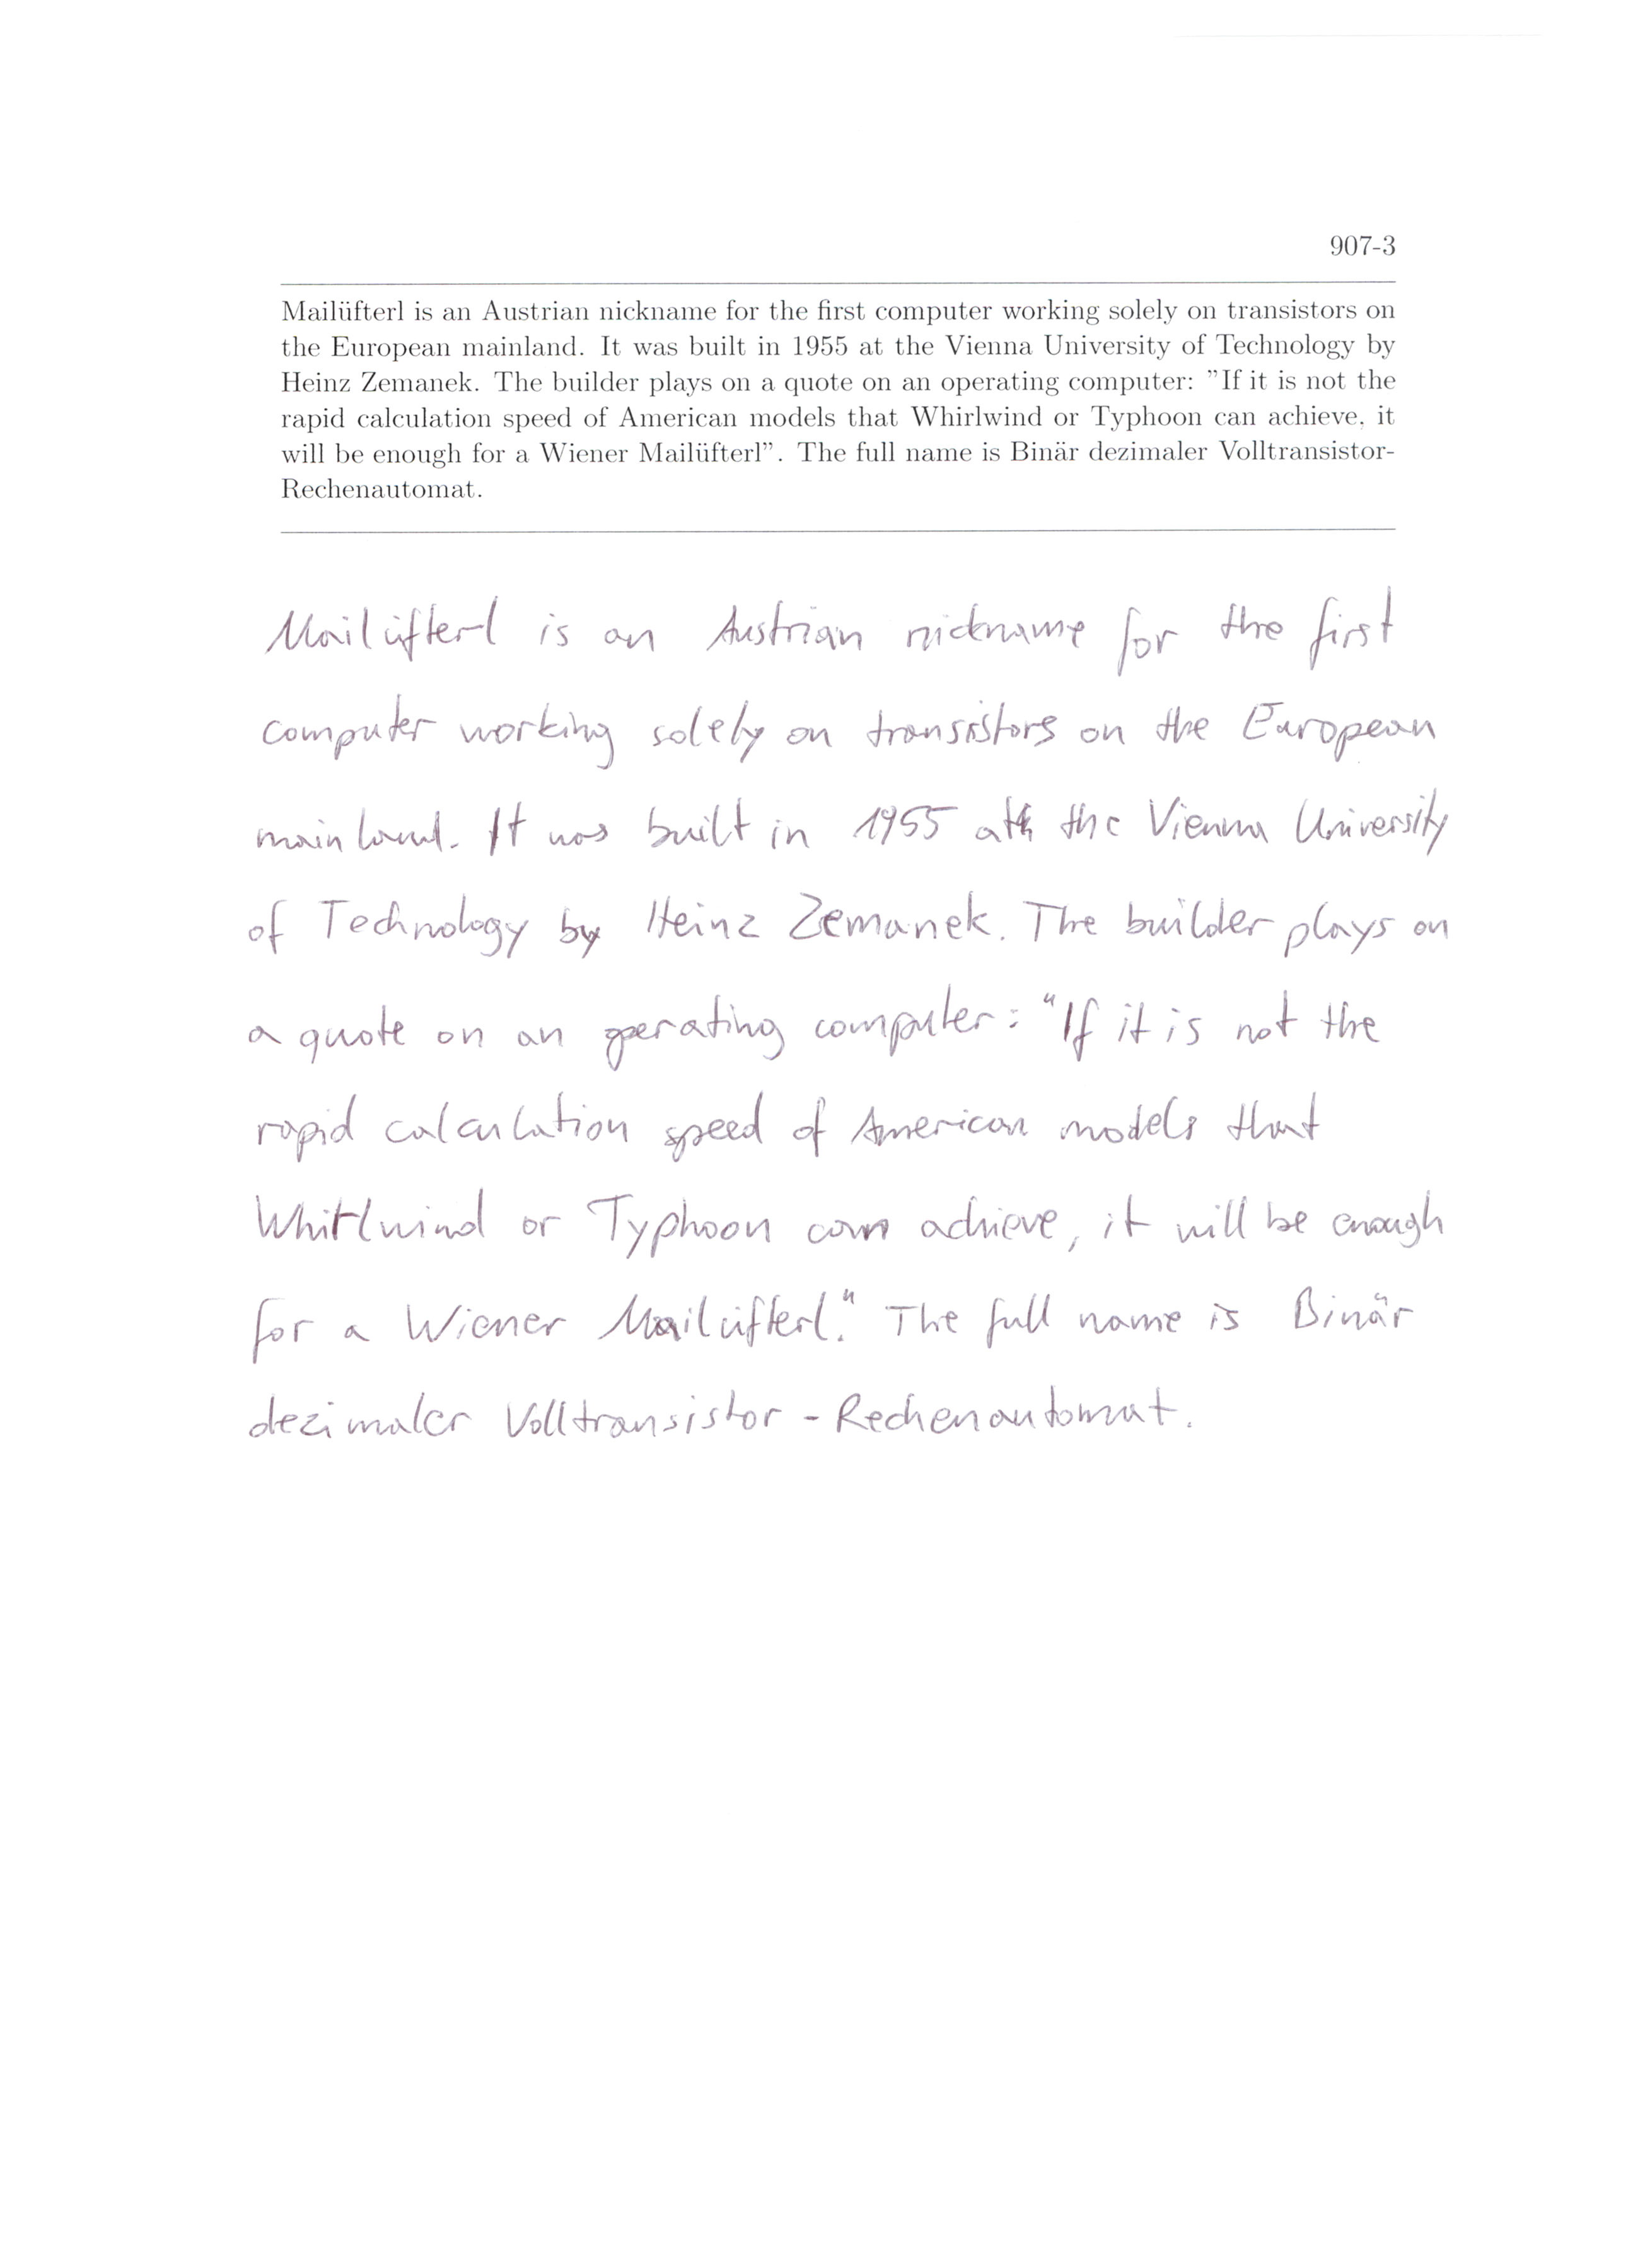 907-3
Mailüfterl is an Austrian nickname for the first computer working solely on transistors on
the European mainland. It was built in 1955 at the Vienna University of Technology by
Heinz Zemanek. The builder plays on a quote on an operating computer: ”If it is not the
rapid calculation speed of American models that Whirlwind or Typhoon can achieve, it
will be enough for a Wiener Mailüfterl”. The full name is Binär dezimaler Volltransistor-
Rechenautomat.
Mailüfterl is an Austrian nickname for the first
computer working solely on transistors on the European
mainland. It was built in 1955 at the Vienna University
of Technology by Heinz Zemanek. The builder plays on
a quote on an operating computer: "If it is not the
rapid calculation speed of American models that
Whirlwind or Typhoon can achieve, it will be enough
for a Wiener Mailüfterl." The full name is Binär
dezimaler Volltransistor-Rechenautomat.